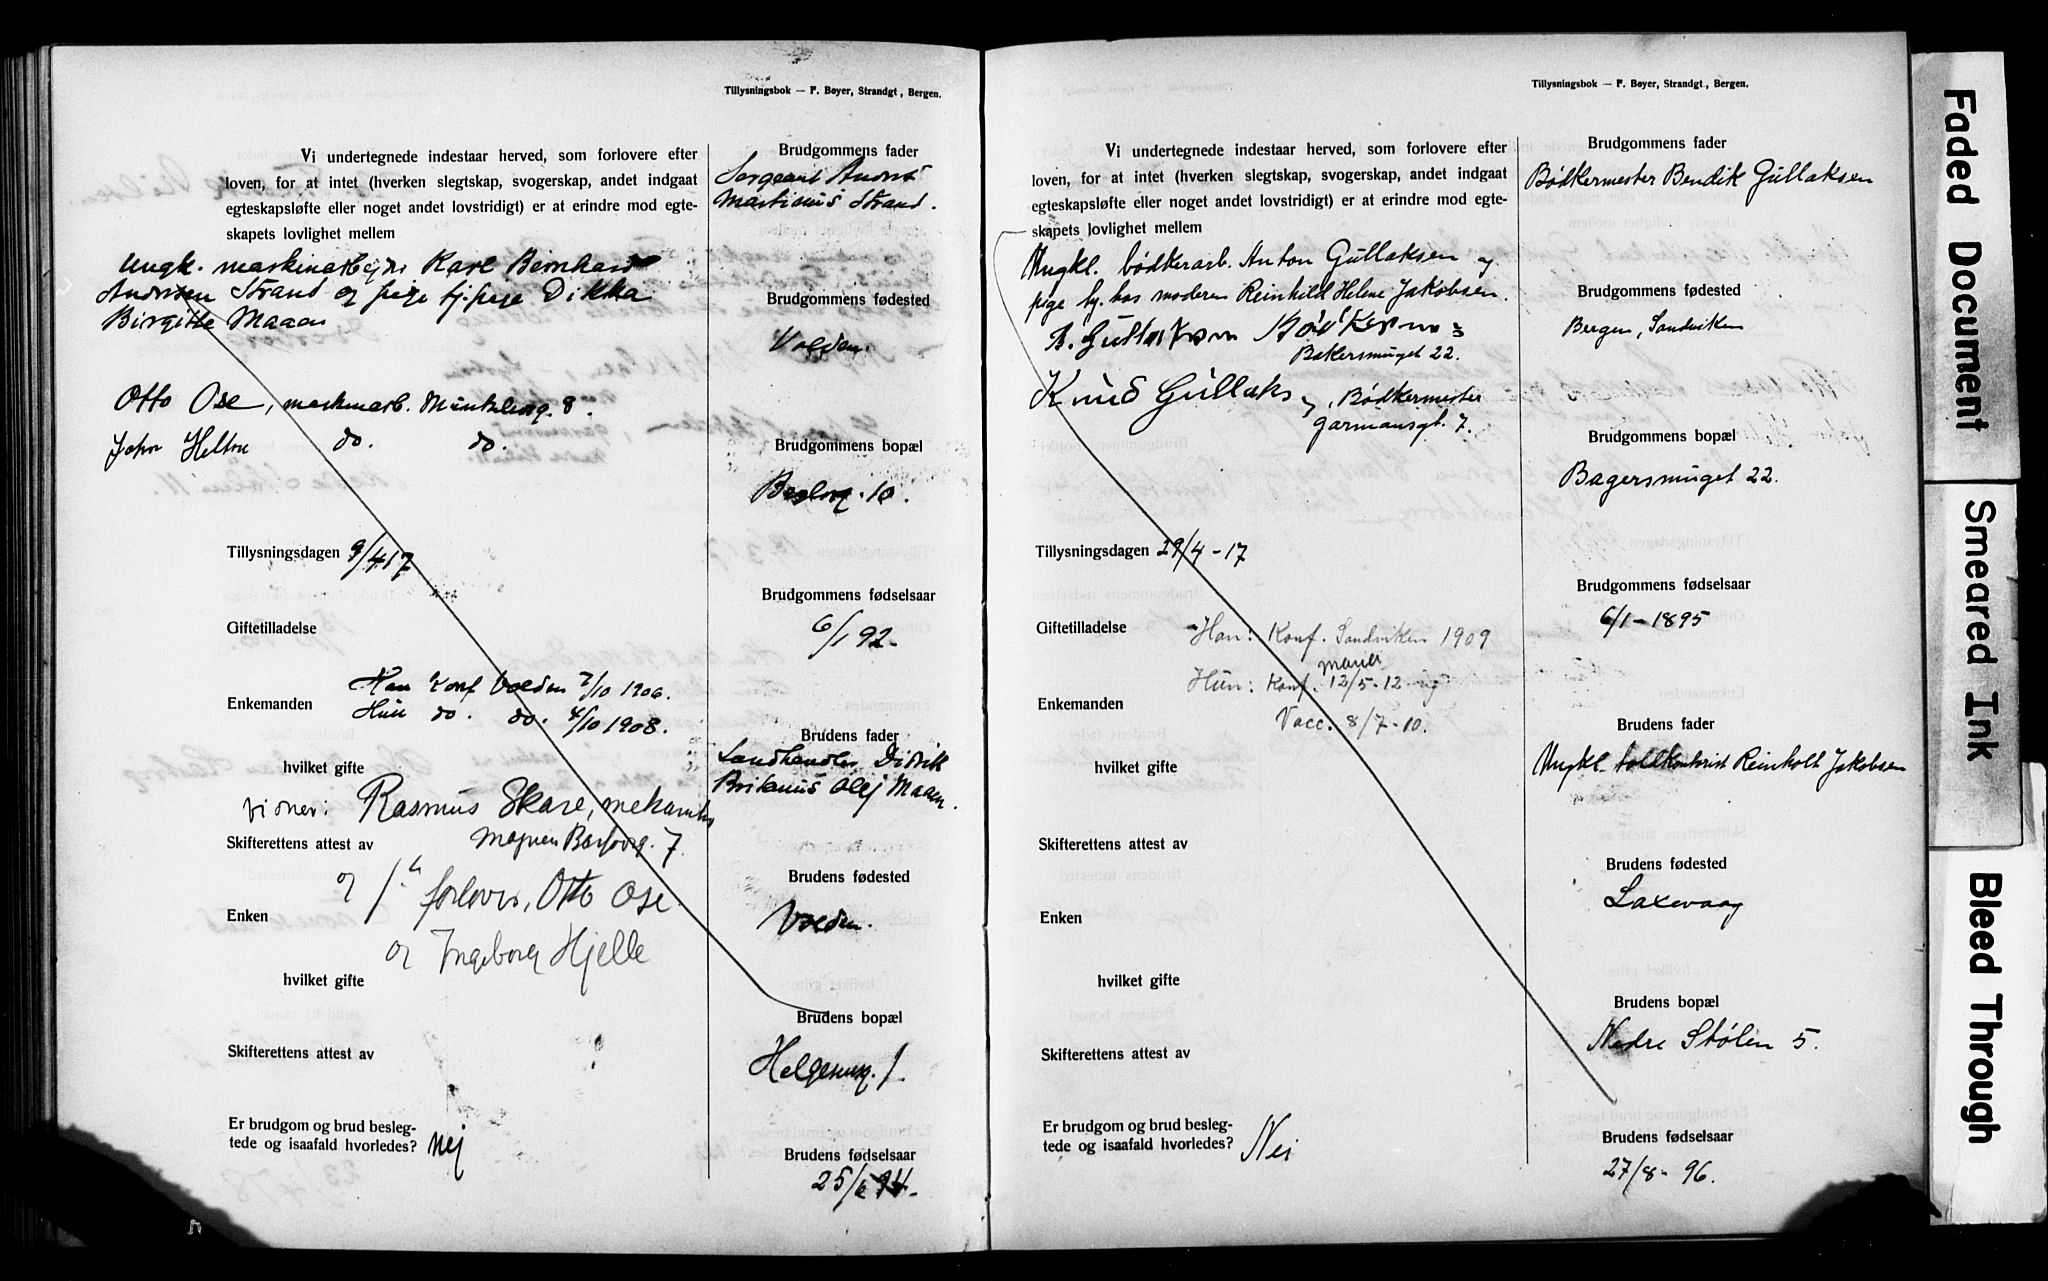 Tillysningsbok — F. Bøyer, Strandgt, Bergen.
Vi undertegnede indestaar herved, som forlovere efter
loven, for at intet (hverken slegtskap, svogerskap, andet indgaat
egteskapsløfte eller noget andet lovstridigt) er at erindre mod egte-
skapets lovlighet mellem
Ungk. maskinarbejder Karl Bernhard
Andersen Strand og pige tj.pige Dikka
Birgitte Maaen
Otto Ose, maskinarb. 8.
John do. do.
Tillysningsdagen 9/4 17
Giftetilladelse
Enkemanden
Han Konf Volden 7/10 1906.
Hun do. do. 4/10 1908.
hvilket gifte
Rasmus Skare,
Skifterettens attest av
Magnus Barforg. 7.
og forlover, Otto Ose
Enken
og Ingeborg Hjelle
hvilket gifte
Skifterettens attest av
Er brudgom og brud besleg-
tede og isaafald hvorledes? Nej
Brudgommens fader
Sergeant
Martinus Strand.
Brudgommens fødested
Volden.
Brudgommens bopæl
10.
Brudgommens fødselsaar
6/1 92-
Brudens fader
Landhandler Didrik
Olej Maaen.
Brudens fødested
Volden.
Brudens bopæl
1.
Brudens fødselsaar
25/6 94-
Tillysningsbok — F. Bøyer, Strandgt, Bergen.
Vi undertegnede indestaar herved, som forlovere efter
loven, for at intet (hverken slegtskap, svogerskap, andet indgaat
egteskapsløfte eller noget andet lovstridigt) er at erindre mod egte-
skapets lovlighet mellem
Ungkl. bødkerarb. Anton Gullaksen og
pige hj. hos moderen Reinhild Helene Jakobsen.
B. Gullaksen
Bakersmuget 22.
Knud Gullaksen, Bødkermester
Garmansgt. 7.
Tillysningsdagen 29/4-17
Giftetilladelse
Han: Konf. Sandviken 1909
Maria
Hun: Konf. 12/5-12 og
Enkemanden
Vacc. 8/7-10.
hvilket gifte
Skifterettens attest av
Enken
hvilket gifte
Skifterettens attest av
Er brudgom og brud besleg-
tede og isaafald hvorledes? Nei
Brudgommens fader
Bødkermester Bendik Gullaksen
Brudgommens fødested
Bergen, Sandviken
Brudgommens bopæl
Bagersmuget 22.
Brudgommens fødselsaar
6/1-1895
Brudens fader
Ungkl. Reinholt Jakobsen
Brudens fødested
Laxevaag
Brudens bopæl
Nedre Stølen 5.
Brudens fødselsaar
27/8-96.
Faded Document
Smeared Ink
Bleed Through